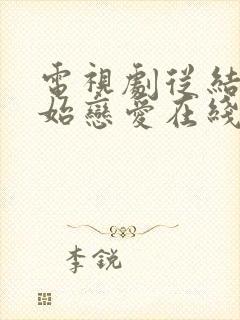 電視劇從結
始戀愛在綫
李銳